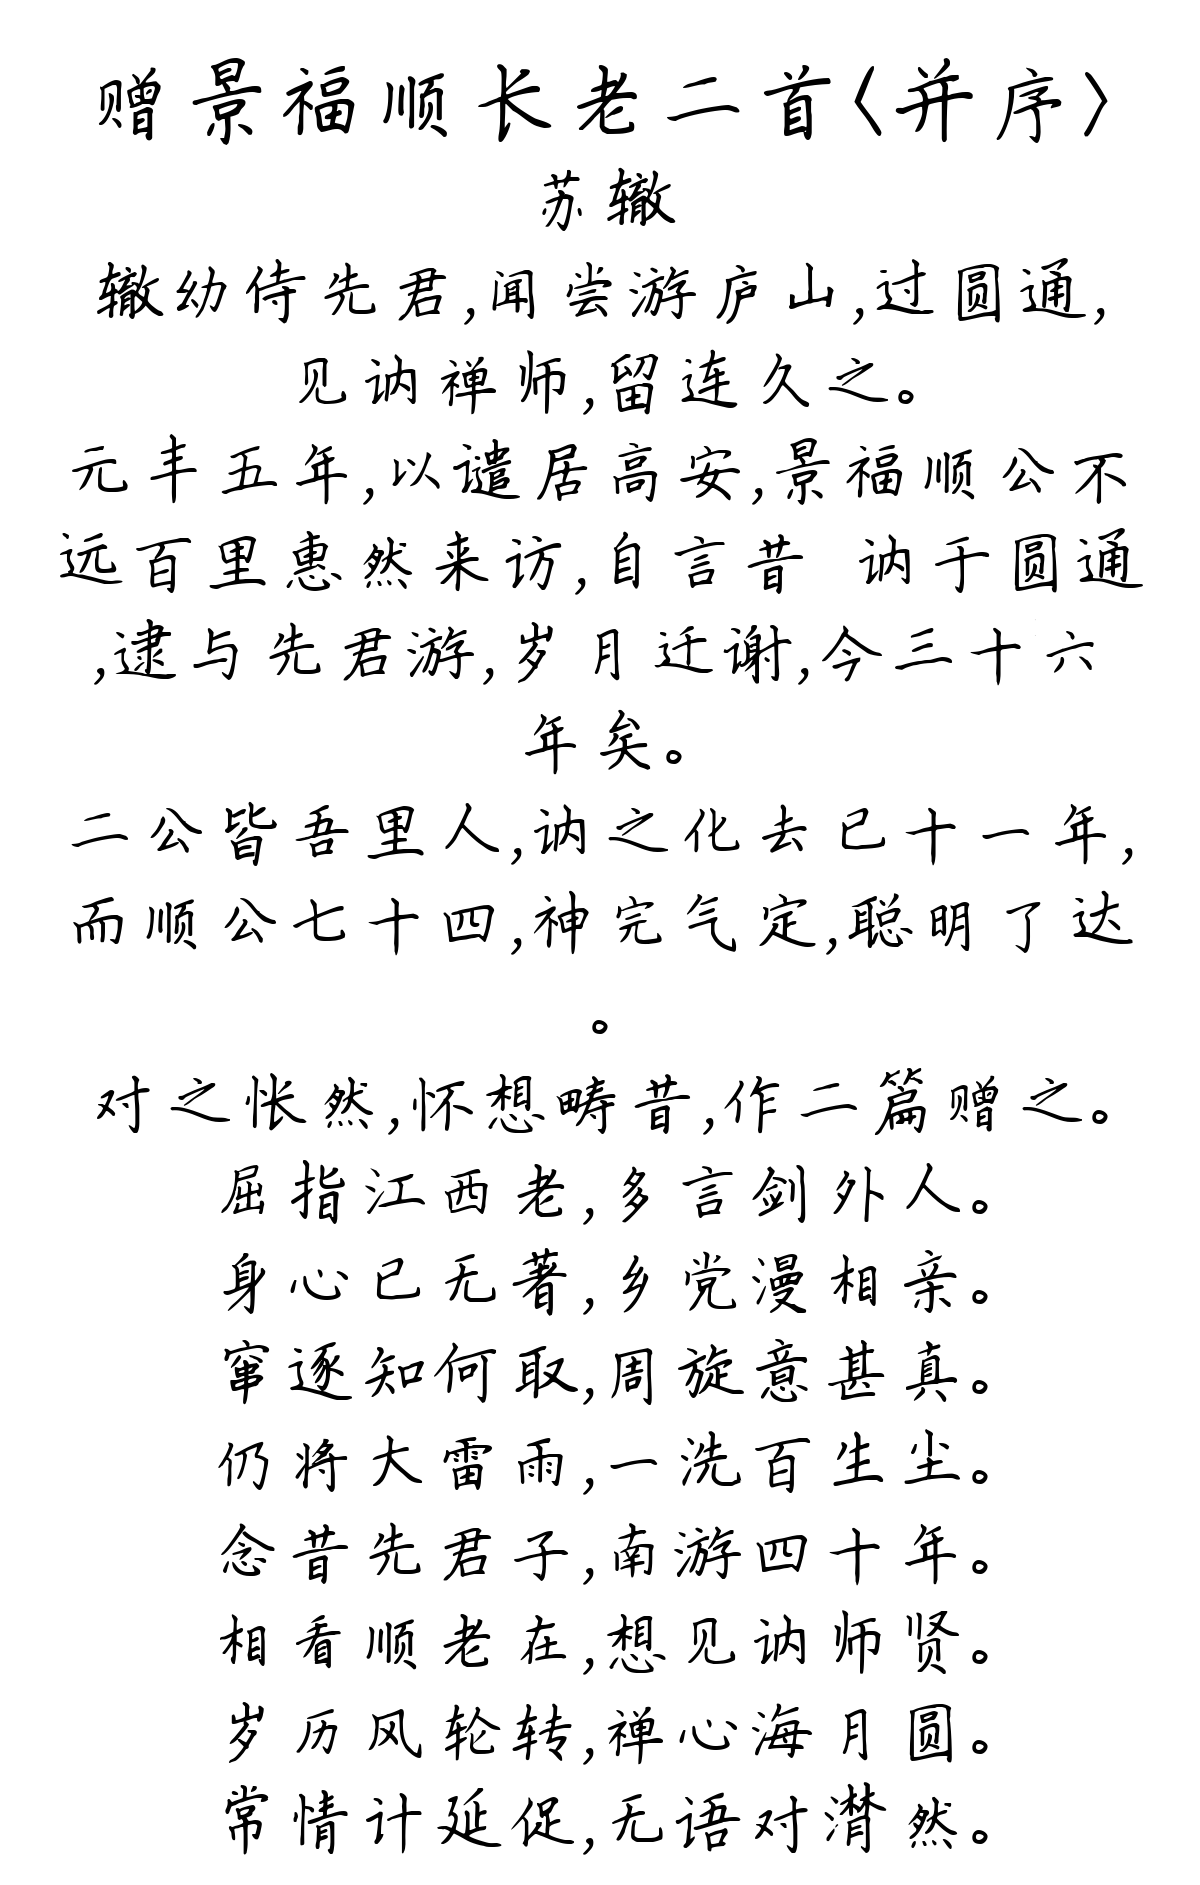 赠景福顺长老二首〈并序〉
苏辙
辙幼侍先君,闻尝游庐山,过圆通,
见讷禅师,留连久之。
元丰五年,以谴居高安,景福顺公不
远百里惠然来访,自言昔 讷于圆通
,逮与先君游,岁月迁谢,今三十六
年矣。
二公皆吾里人,讷之化去已十一年,
而顺公七十四,神完气定,聪明了达
。
对之怅然,怀想畴昔,作二篇赠之。
屈指江西老,多言剑外人。
身心已无著,乡党漫相亲。
窜逐知何取,周旋意甚真。
仍将大雷雨,一洗百生尘。
念昔先君子,南游四十年。
相看顺老在,想见讷师贤。
岁历风轮转,禅心海月圆。
常情计延促,无语对潸然。